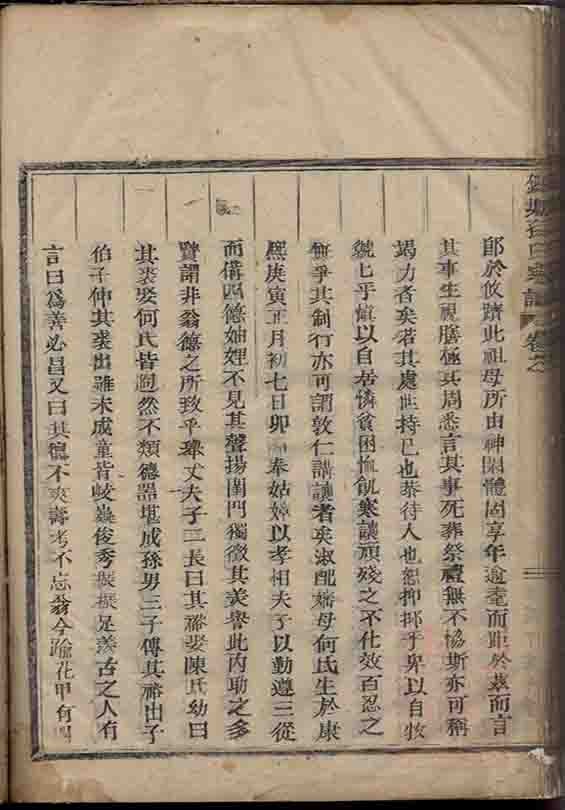 郎於攸躋此祖母所由神閑體固享年逾耄而距於茲而言
其事生視膳極其周悉言其事死葬祭禮無不恊斯亦可稱
竭力者矣若其處世持已也恭待人也恕抑抑乎卑以自牧
虢乜乎慎以自居憐貧困恤飢寒讓頑殘之不仕效百忍之
無爭其制行亦可謂敦仁講讓者矣淑配孺母何氏生於康
熙庚寅正月初七日卯 奉姑嫜以孝相夫子以勤遵三從
而備四德妯娌不見其聲揚閨門獨徵其美譽此内助之多
賢謂非翁德之所致乎琸丈夫子二長曰其裕娶陳氏幼曰
其裘娶何氏皆迥然不類德器堪成孫男三子傳其裕出子
伯子仲其裘出雖未成童皆岐嶷俊秀振振足羨古之人有
言曰爲善必昌又曰其德不爽壽考不忘翁今踰花甲有
氏宗譜 卷之